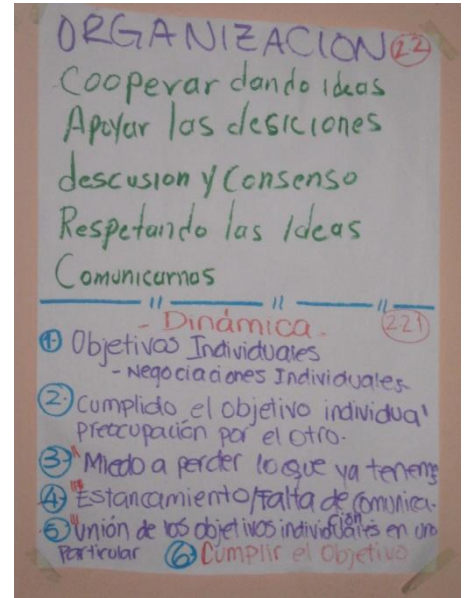 ORGANIZACION 22
Cooperar dando ideas
Apoyar las desiciones
descusion y Consenso
Respetando las Ideas
Comunicarnos
- Dinámica - 221
1. Objetivos Individuales
- Negociaciones Individuales
2. Cumplido el objetivo individual
preocupación por el otro.
3. "Miedo a perder lo que ya tenems
4. "Estancamiento/Falta de Comunica-
ción
5. "Unión de los objetivos individuales en uno
Particular 6 Cumplir el Objetivo